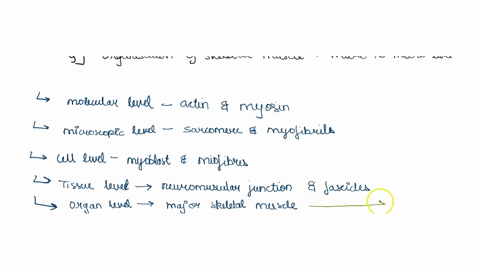 9] Organisation of skeletal muscle - micro to macro level
↳ molecular level - actin & myosin
↳ microscopic level - sarcomere & myofibrils
↳ cell level - myoblast & miofibres
↳ Tissue level → neuromusular junction & fascides
↳ organ level → major skeletal muscle